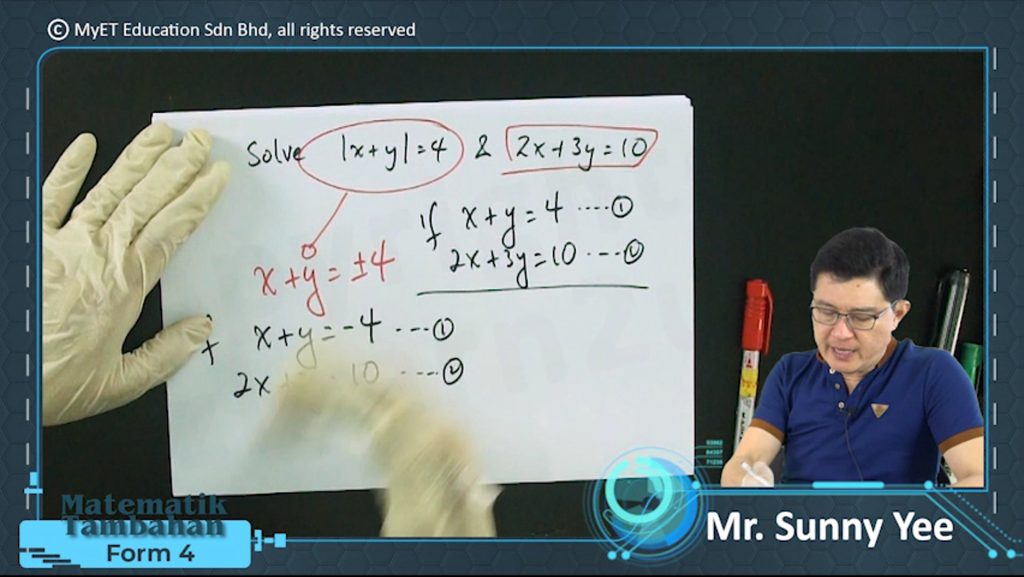 © MyET Education Sdn Bhd, all rights reserved
Solve |x+y|=4 & 2x+3y=10
x+y=±4
If x+y=4 ····①
2x+3y=10 ····②
x+y=-4 ····①
2x 10 ····②
Matematik
Tambahan
Form 4
Mr. Sunny Yee